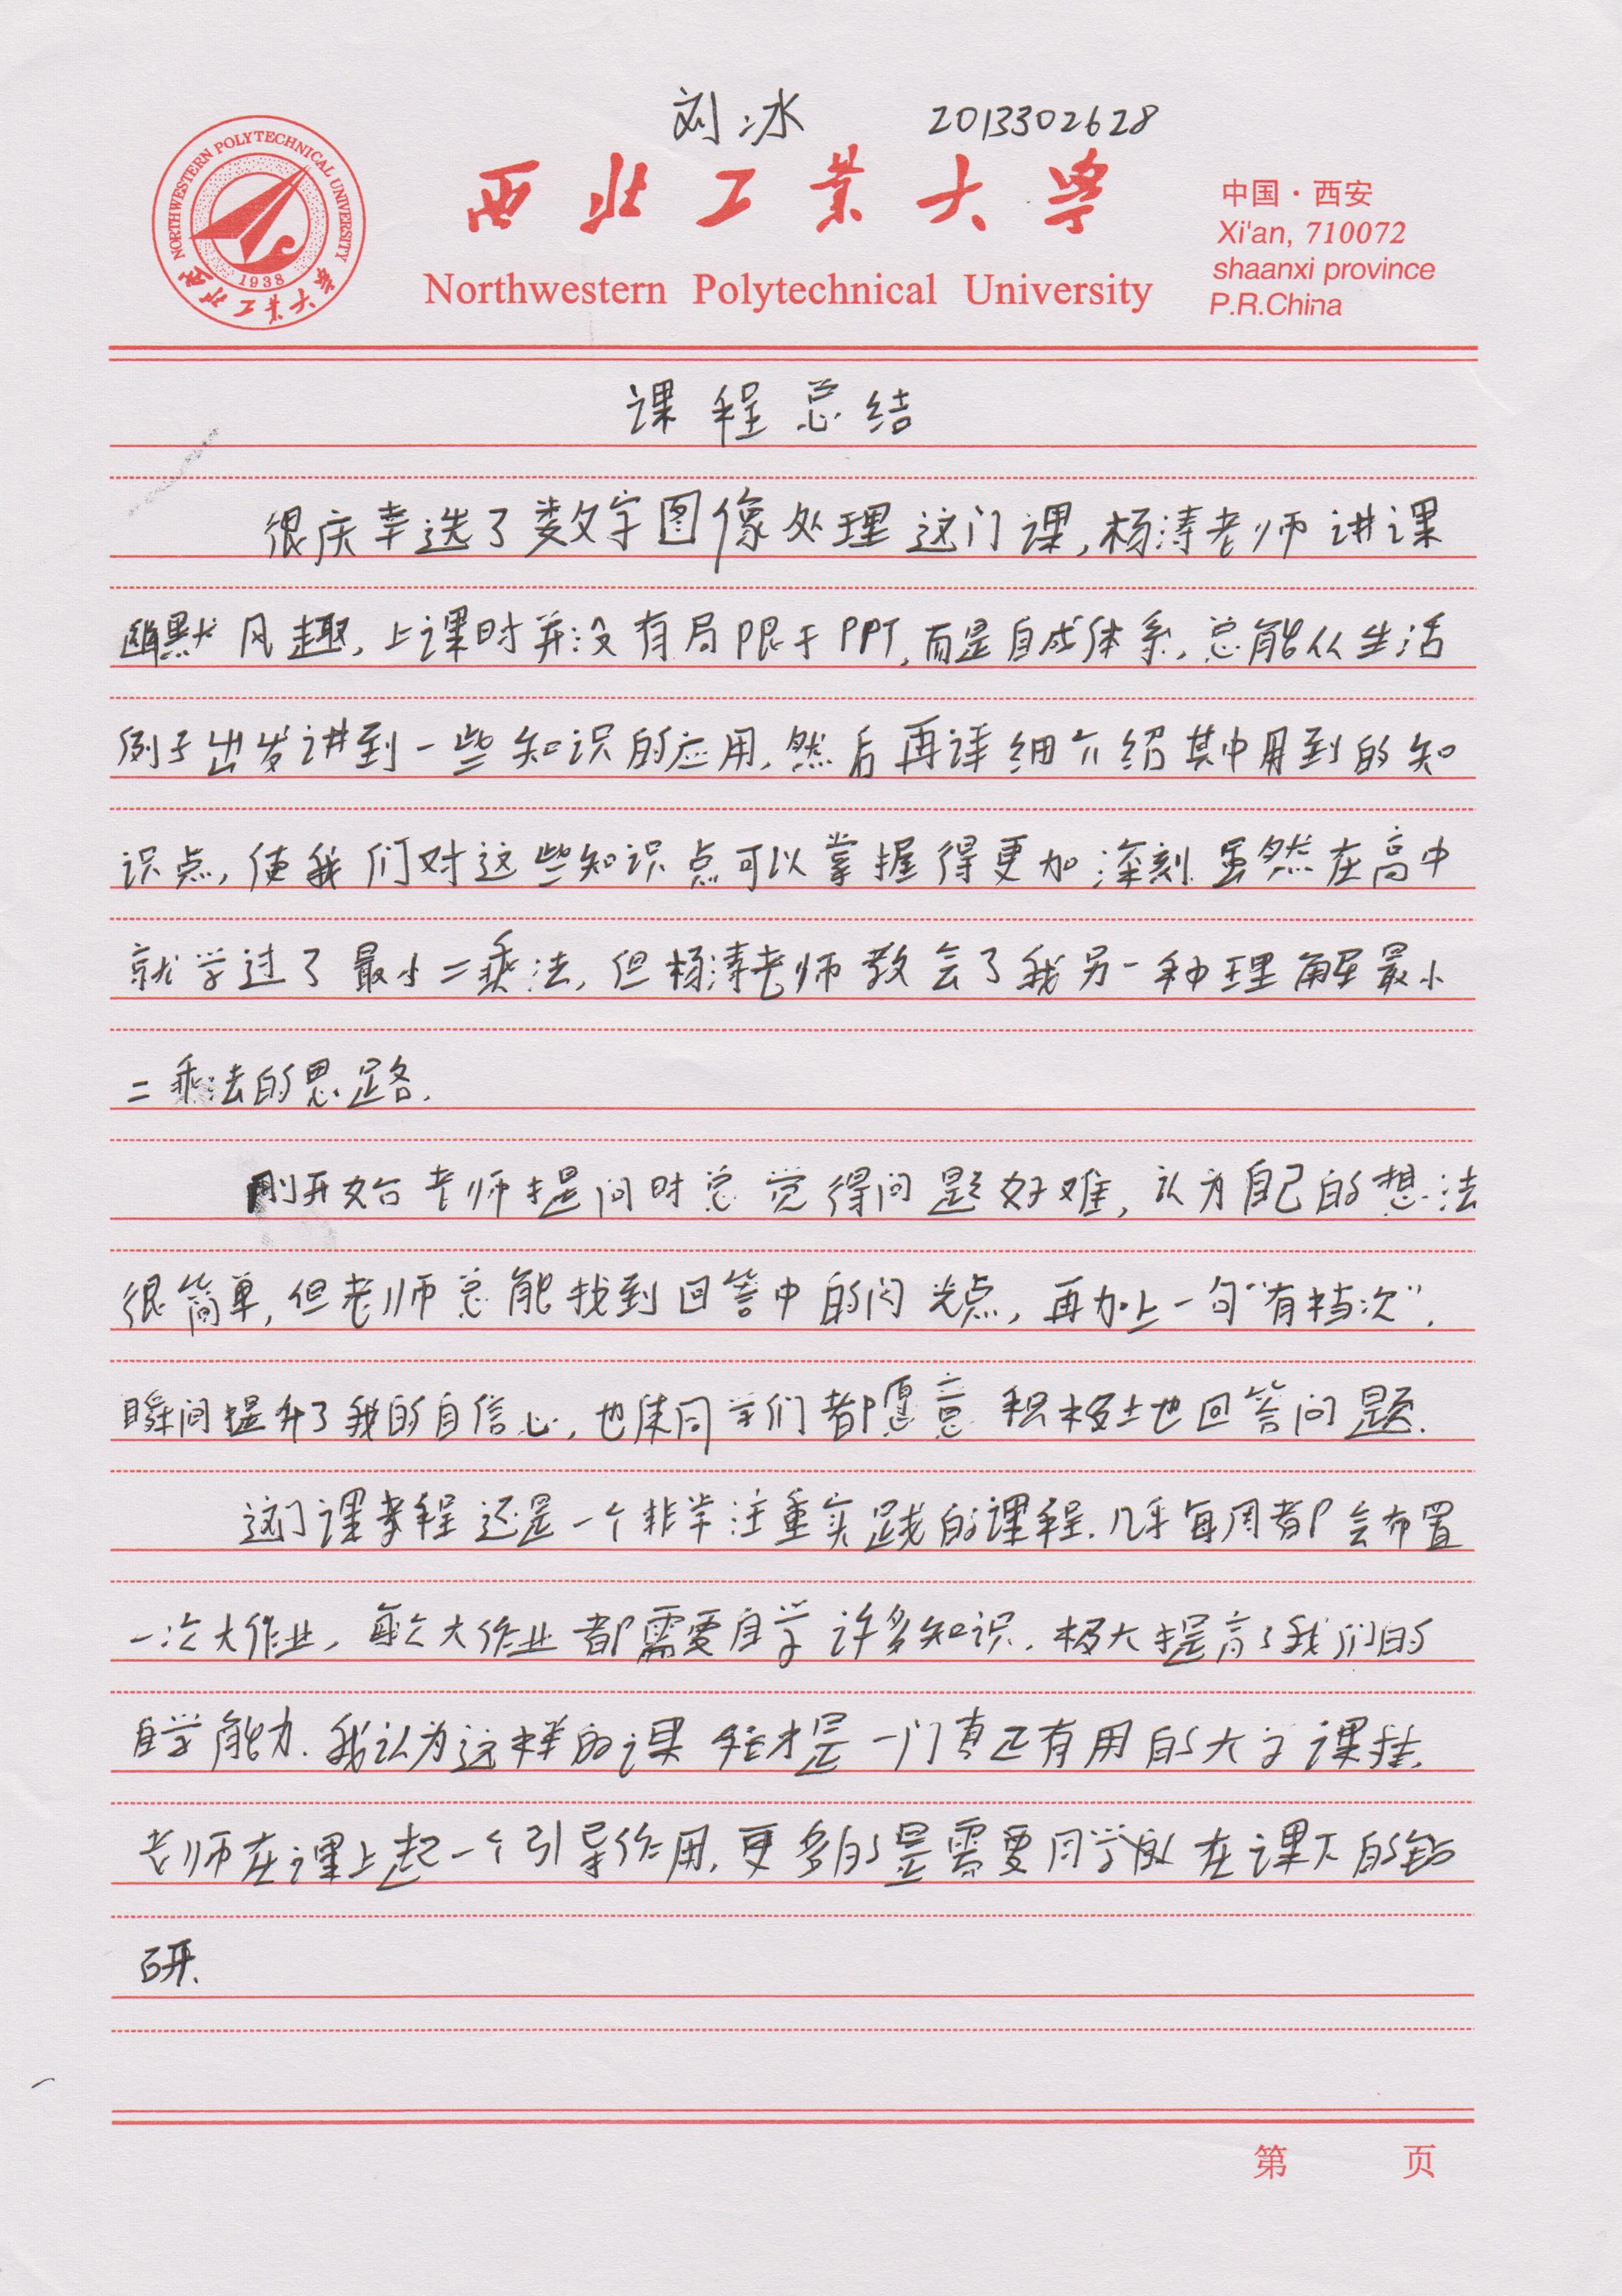 刘冰 2013302628
NORTHWESTERN POLYTECHNICAL UNIVERSITY
1938
西北工业大学
西北工业大学
Northwestern Polytechnical University
中国·西安
Xi'an, 710072
shaanxi province
P.R.China
课程总结
很庆幸选了数字图像处理这门课,杨涛老师讲课
幽默风趣,上课时并没有局限于PPT,而是自成体系,总能从生活
例子出发讲到一些知识的应用,然后再详细介绍其中用到的知
识点,使我们对这些知识点可以掌握得更加深刻.虽然在高中
就学过了最小二乘法,但杨涛老师教会了我另一种理解最小
二乘法的思路.
刚开始老师提问时总觉得问题好难,认为自己的想法
很简单,但老师总能找到回答中的闪光点,再加上一句“有档次”,
瞬间提升了我的自信心,也使同学们都愿意积极地回答问题.
这门课程还是一个非常注重实践的课程.几乎每周都会布置
一次大作业,每次大作业都需要自学许多知识,极大提高了我们的
自学能力.我认为这样的课程才是一门真正有用的大学课程.
老师在课上起一个引导作用,更多的是需要同学们在课下的钻
研.
第 页